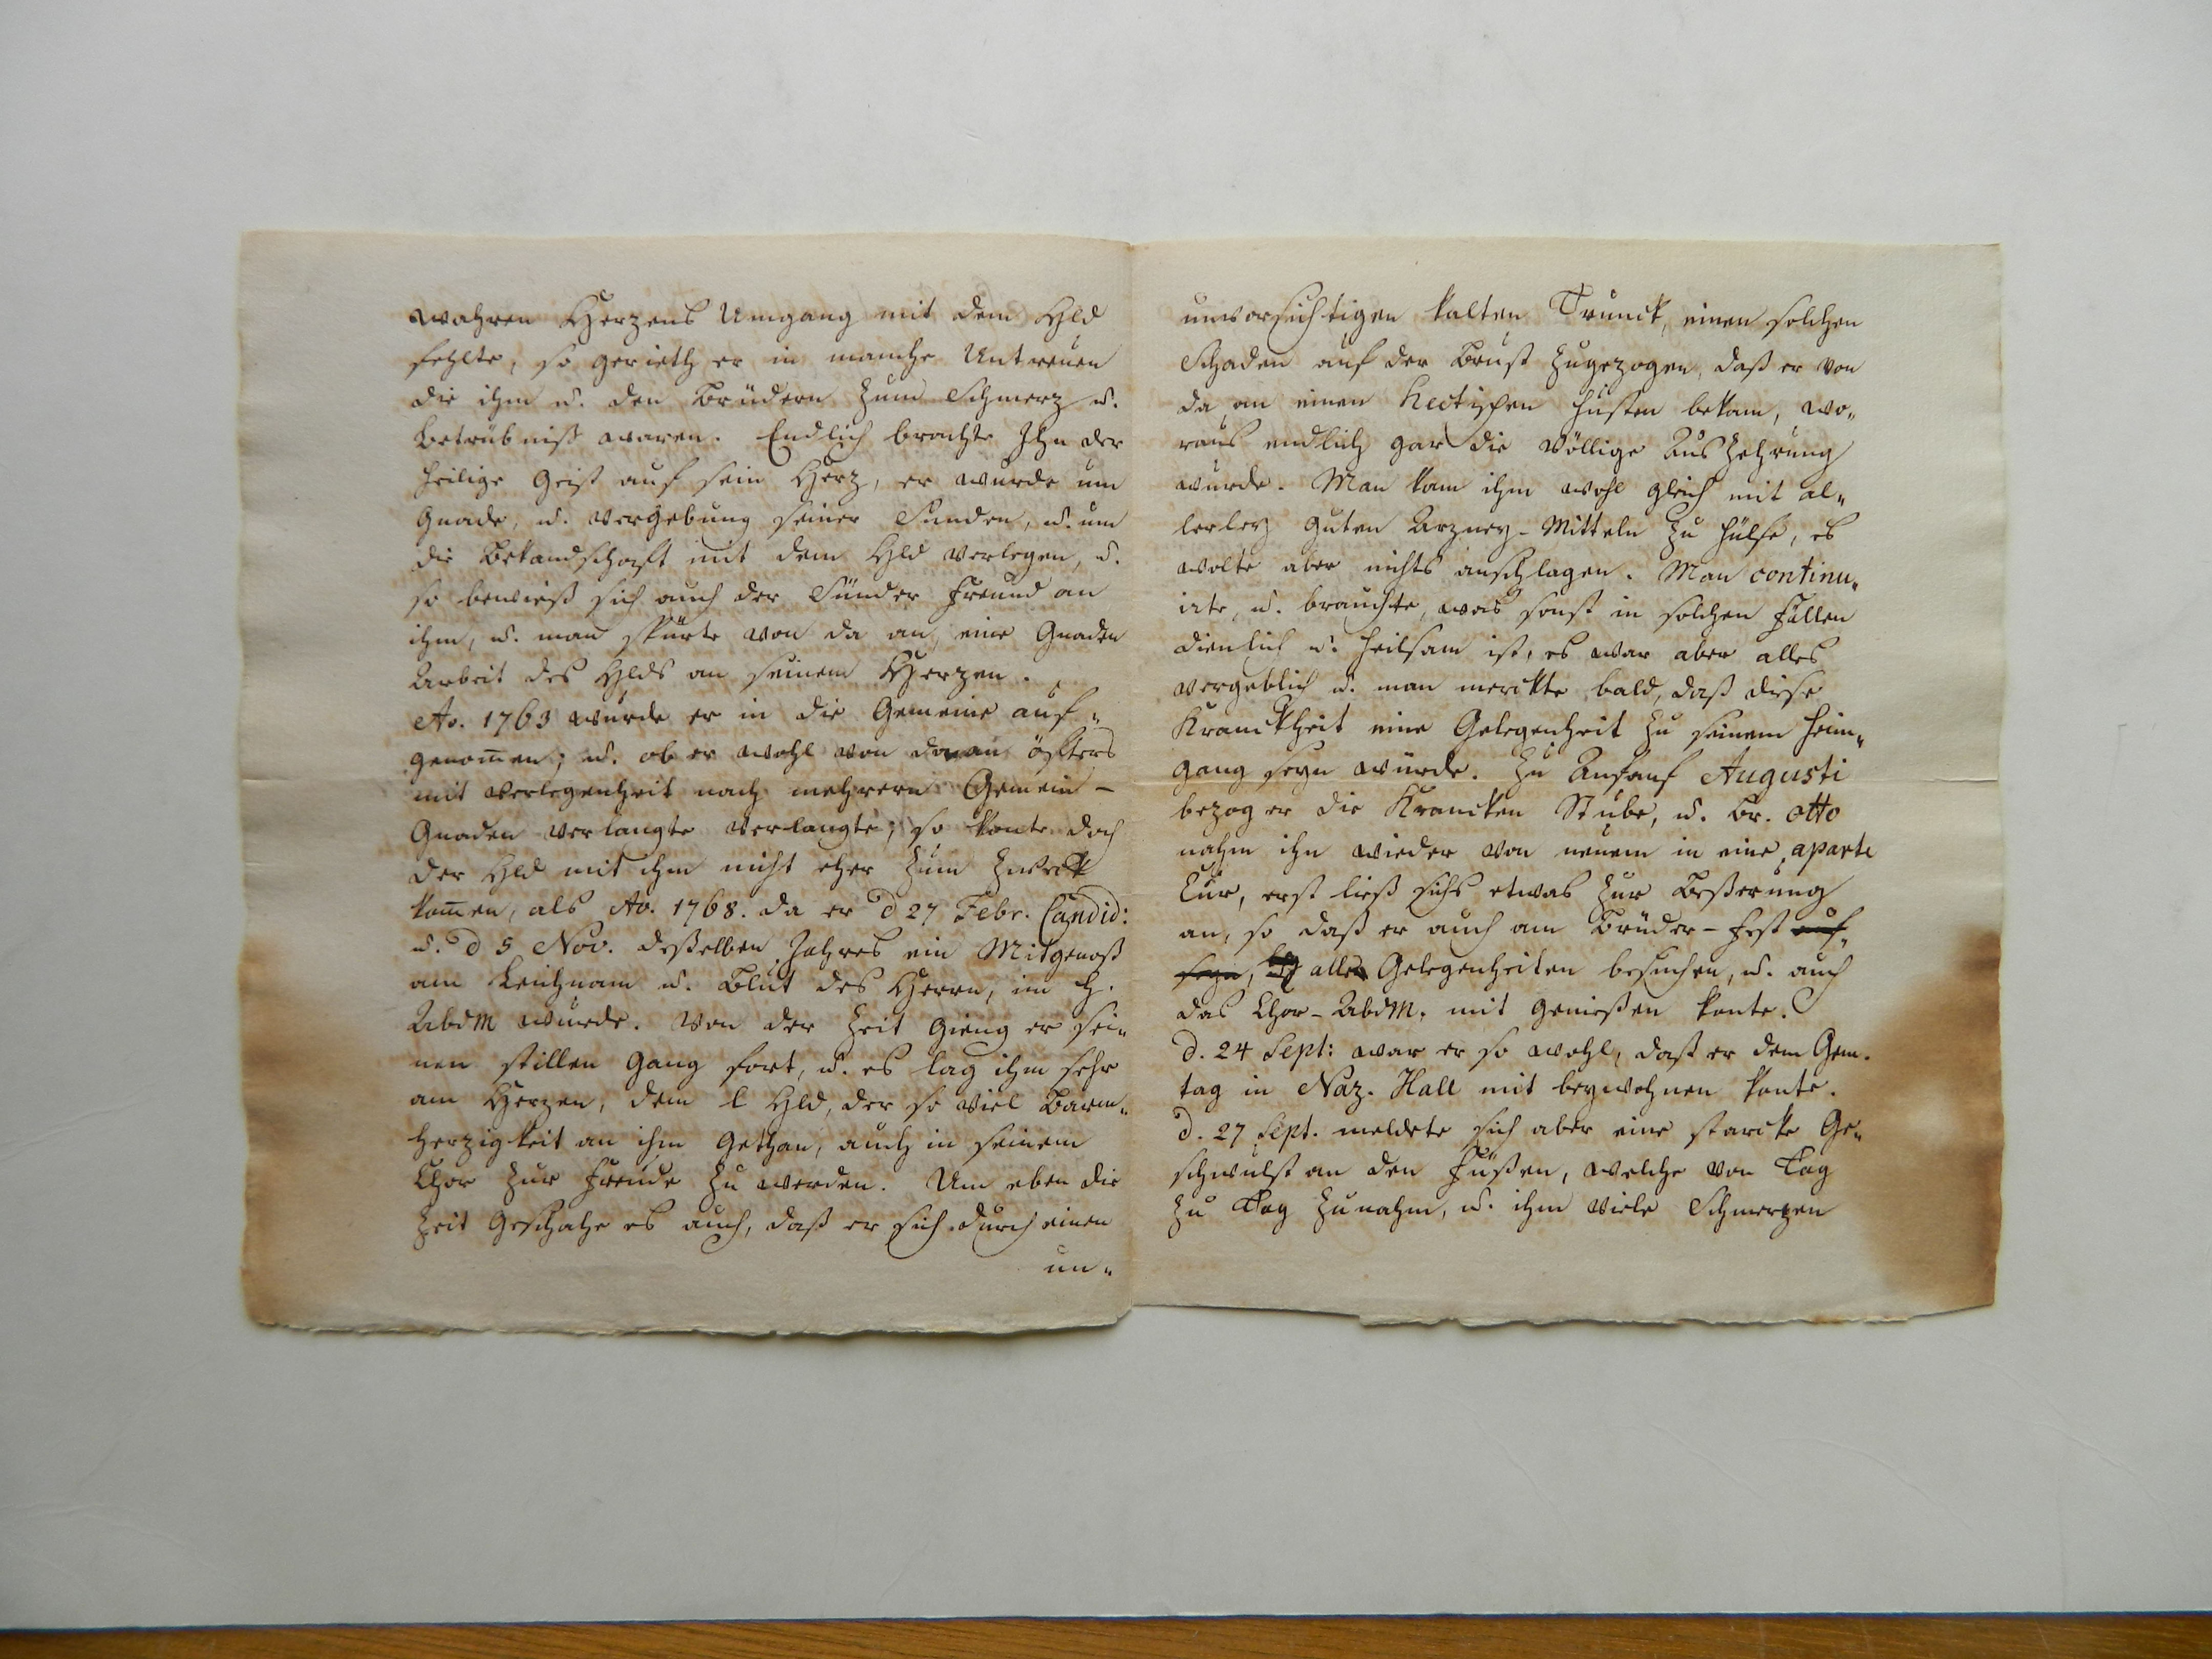 wahren Herzens Umgang mit dem Hld
fehlte, so gerieth er in manche Untreuen
die ihm u. den Brüdern zum Schmerz u.
Betrübniß waren. Endlich brachte Ihn der
heilige Geist auf sein Herz, er wurde um
Gnade, u. Vergebung seiner Sünden, u. um
die Bekandschaft mit dem Hld verlegen, u.
so bewieß sich auch der Sünder Freund an
ihm, u. man spürte von da an, eine Gnaden
Arbeit des Hlds an seinem Herzen.
Ao. 1763 wurde er in die Gemeine auf-
genom̄en; u. ob er wohl von da an öfters
mit Verlegenheit nach mehrern Gemein-
Gnaden verlangte verlangte; so konte doch
der Hld mit ihm nicht eher zum Zweck
kom̄en, als Ao. 1768. da er d 27 Febr. Candid:
u. d 5 Nov. deßelben Jahres ein Mitgenoß
am Leichnam u. Blut des Herrn, im h.
AbdM wurde. Von der Zeit gieng er sei-
nen stillen Gang fort, u. es lag ihm sehr
am Herzen, dem l Hld, der so viel Barm-
herzigkeit an ihm gethan, auch in seinem
Chor zur Freude zu werden. Um eben die
Zeit geschahe es auch, daß er sich durch einen
un-
unvorsichtigen kalten Trunck, einen solchen
Schaden auf der Brust zugezogen, daß er von
da an einen hectischen Husten bekam, wo-
raus endlich gar die völlige Auszehrung
wurde. Man kam ihm wohl gleich mit al-
lerley guten Arzney-Mitteln zu Hülfe, es
wolte aber nichts anschlagen. Man continu-
irte, u. brauchte, was sonst in solchen Fällen
dienlich u. heilsam ist, es war aber alles
vergeblich u. man merckte bald, daß diese
Kranckheit eine Gelegenheit zu seinem Heim-
gang seyn würde. Zu Anfanf Augusti
bezog er die Krancken Stube, u. Br. Otto
nahm ihn wieder von neuem in eine aparte
Cur, erst ließ sichs etwas zur Beßerung
an, so daß er auch am Brüder-Fest auf-
seyn, alle Gelegenheiten besuchen, u. auch
das Chor-AbdM. mit genießen konte.
d. 24 Sept: war er so wohl, daß er dem Gem.
tag in Naz. Hall mit beywohnen konte.
d. 27 Sept. meldete sich aber eine starcke Ge-
schwulst an den Füßen, welche von Tag
zu Tag zunahm, u. ihm viele Schmerzen